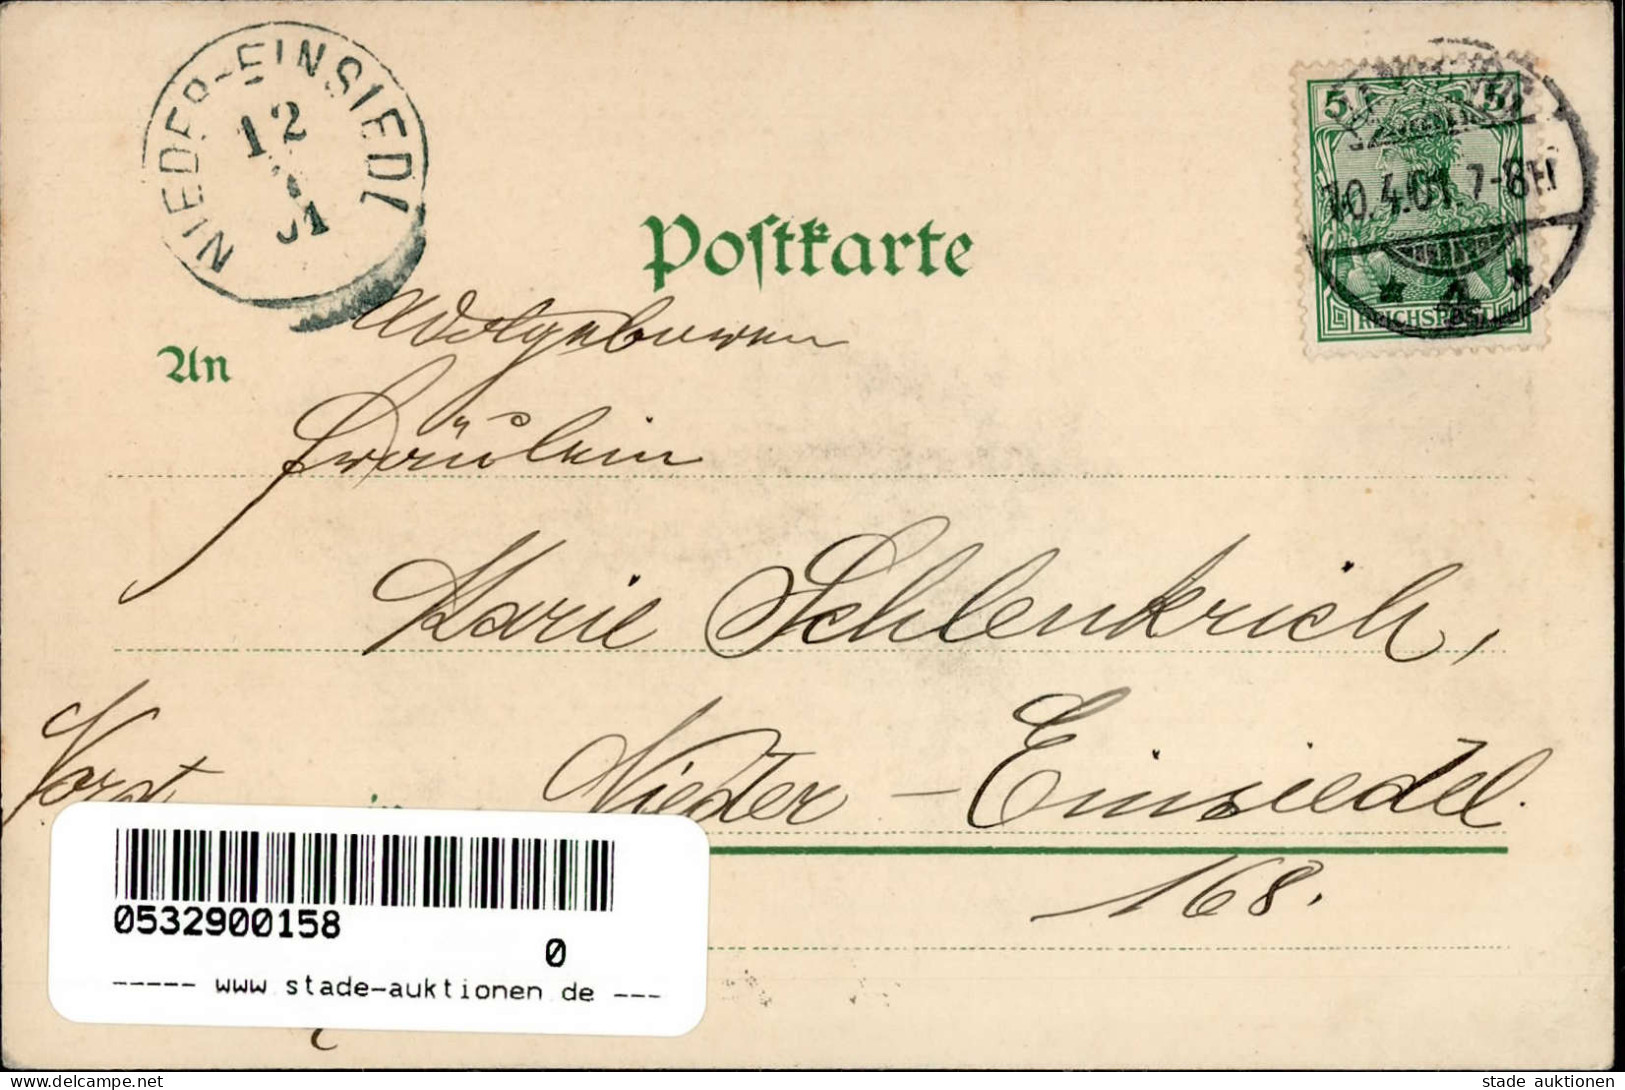 NIEDER-EINSIEDL
12
4
01
5 5
10.4.01. 7-8N
* 1 *
REICHSPOST
Postkarte
Wolgeboren
An
Fräulein
Marie Schlenkrich,
Nieder-Einsiedel.
168.
0532900158
0
----- www.stade-auktionen.de ---
stade auktionen